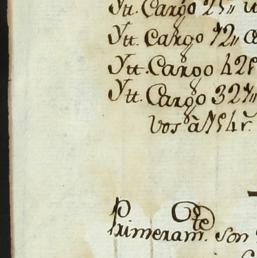 Ytt. Cargo 25
Ytt. Cargo 72
Ytt. Cargo 42
Ytt. Cargo 327
vos à
Primeram.te son